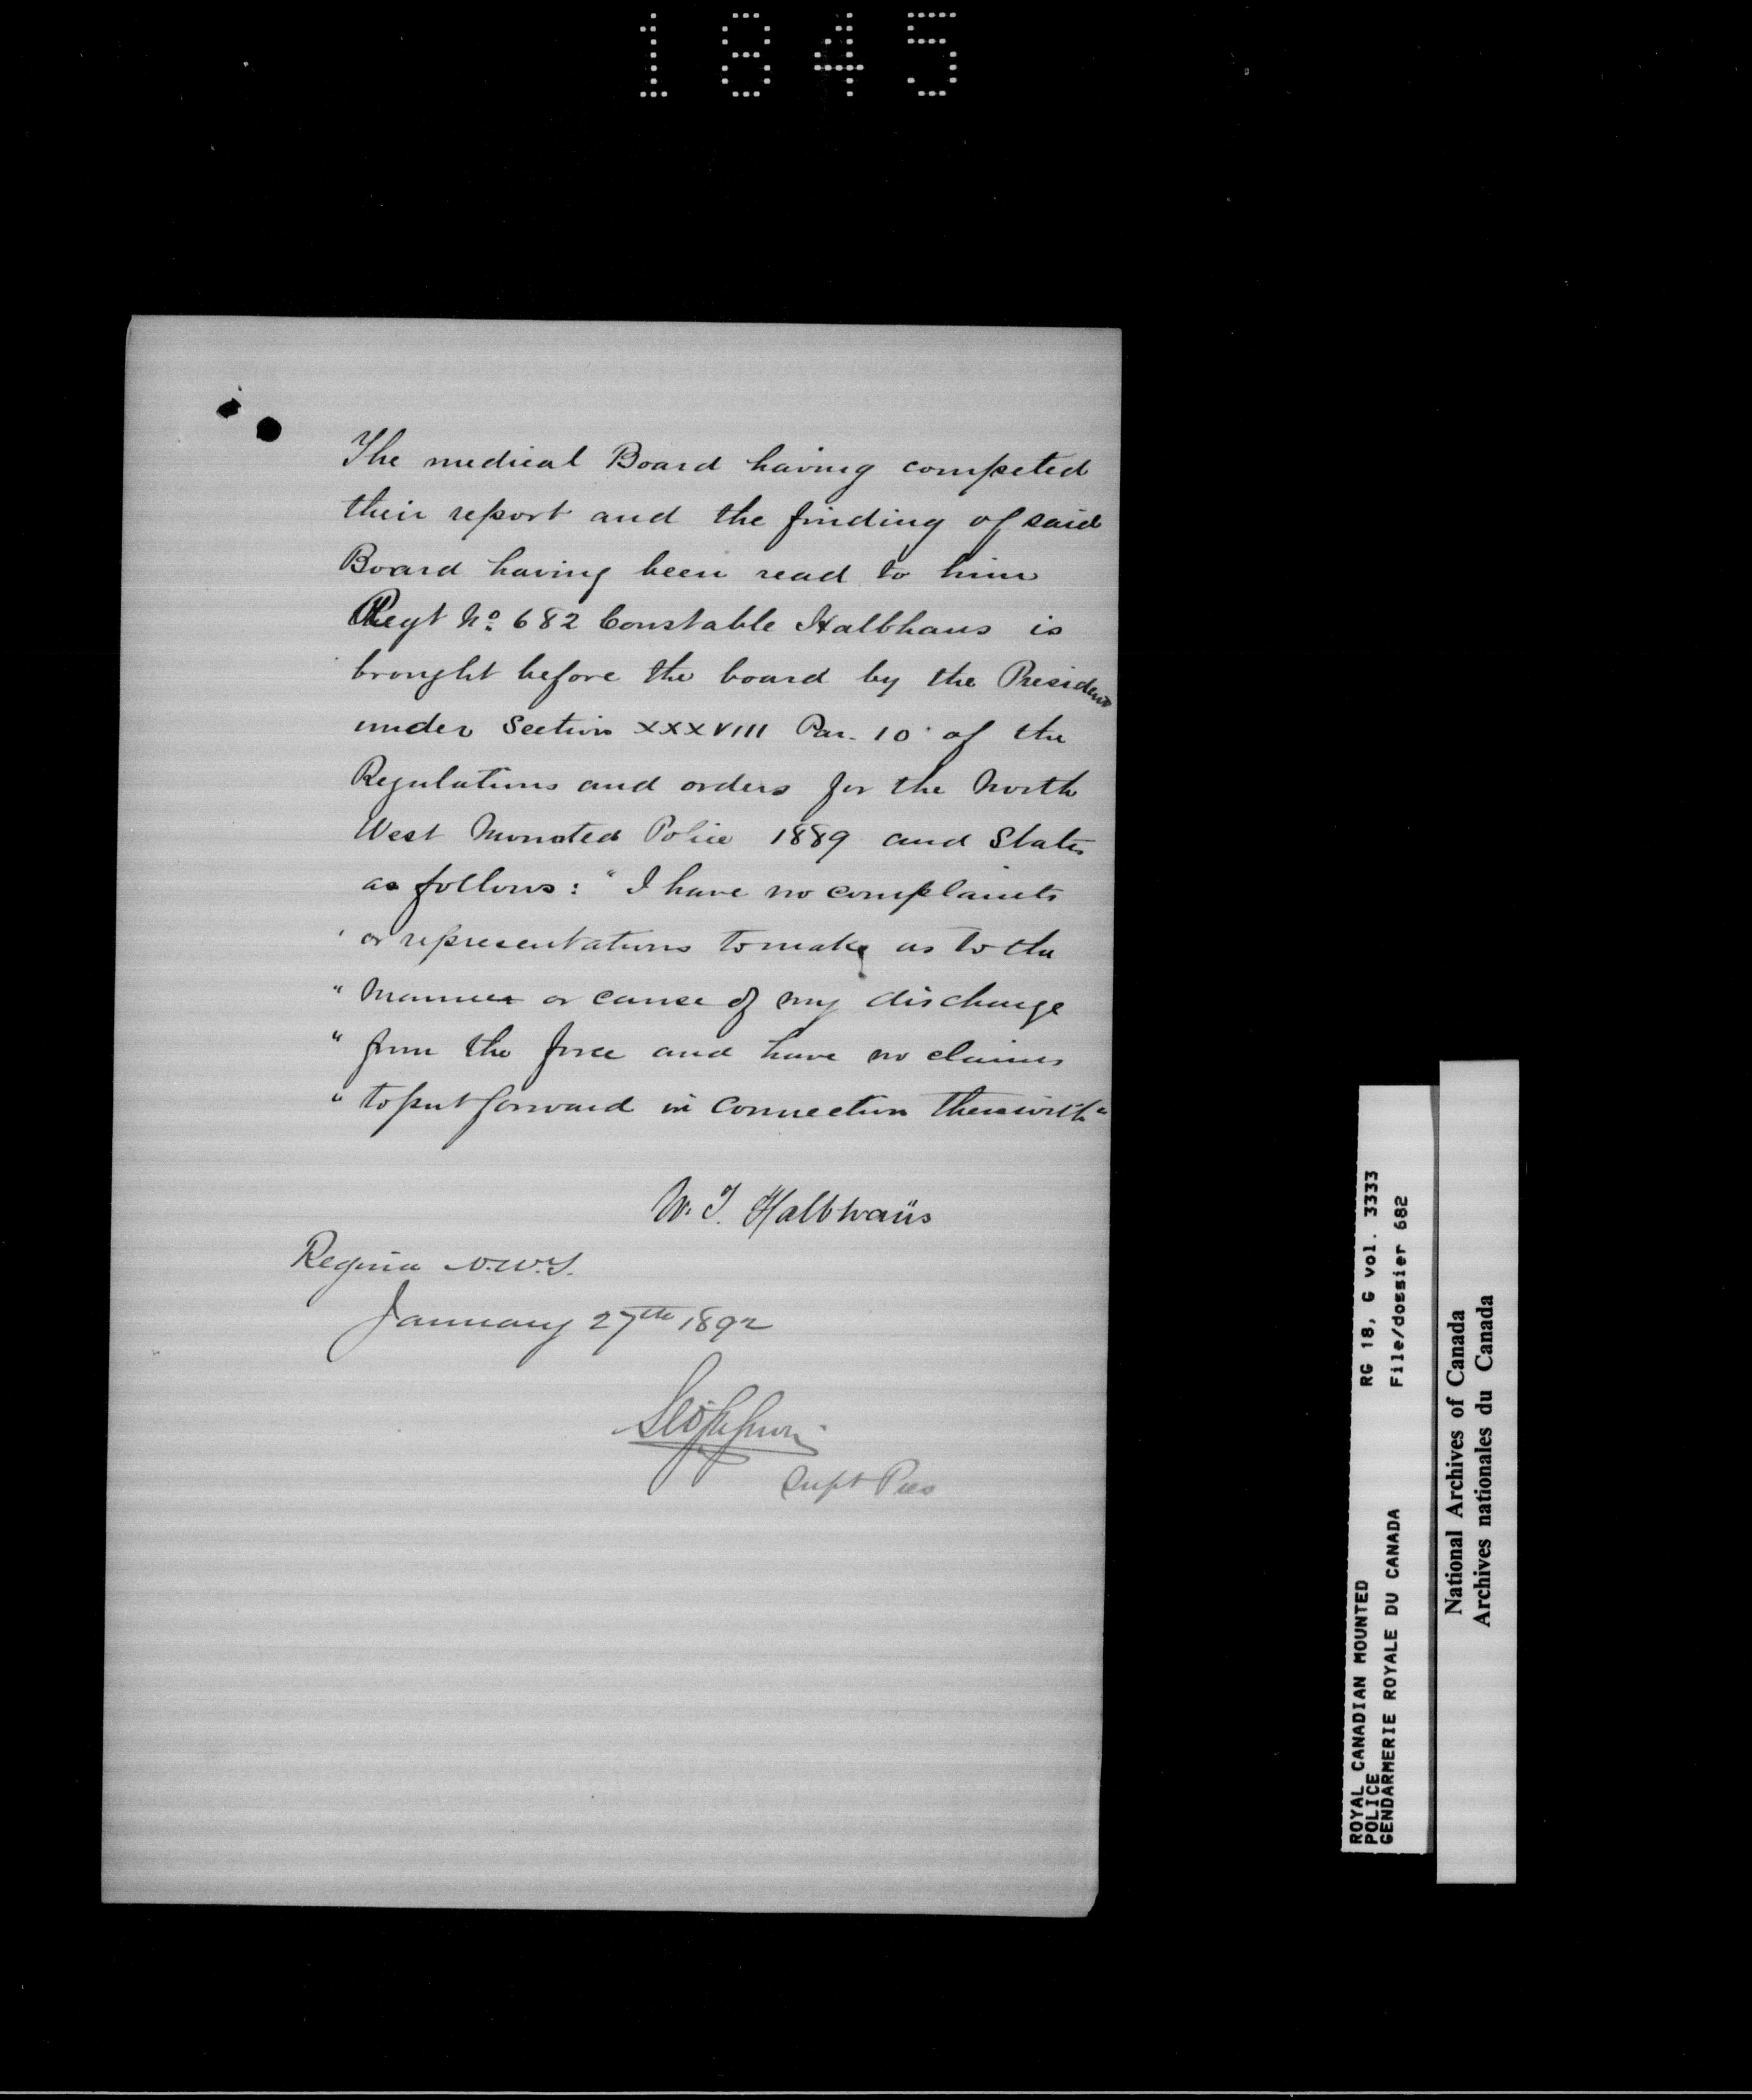 1845
The medical Board having competed
their report and the finding of said
Board having been read to him
Regt No. 682 Constable Halbhaus is
brought before the board by the President
under Section XXXVIII Par. 10 of the
Regulations and orders for the North
West Mounted Police 1889 and States
as follows: "I have no complaints
' or representations to make as to the
" manner or cause of my discharge
" from the force and have no claims
" to put forward in connection therewith"
W. T. Halbhaüs
Regina N.W.T.
January 27th 1892
Supt Pres
ROYAL CANADIAN MOUNTED
POLICE
GENDARMERIE ROYALE DU CANADA
RG 18, G vol. 3333
File/dossier 682
National Archives of Canada
Archives nationales du Canada